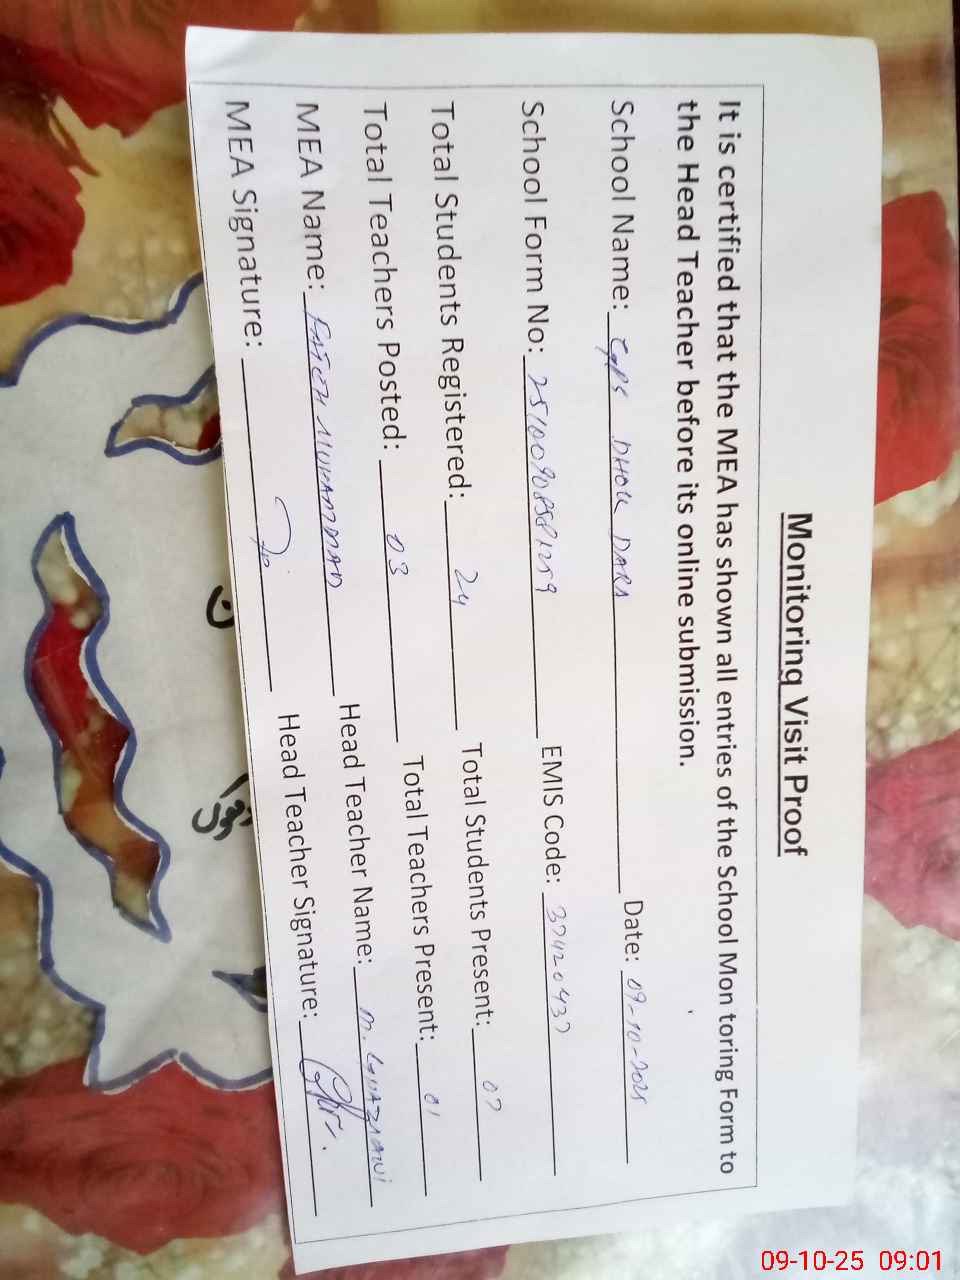 Monitoring Visit Proof
It is certified that the MEA has shown all entries of the School Mon toring Form to
the Head Teacher before its online submission.
School Name: GPS DHOK DARA Date: 09-10-2025
School Form No: EMIS Code: 37420437
Total Students Registered: 24 Total Students Present: 07
Total Teachers Posted: 03 Total Teachers Present: 01
MEA Name: FATEH MUHAMMAD Head Teacher Name: M. GHAZNAWI
MEA Signature: Head Teacher Signature:
09-10-25 09:01